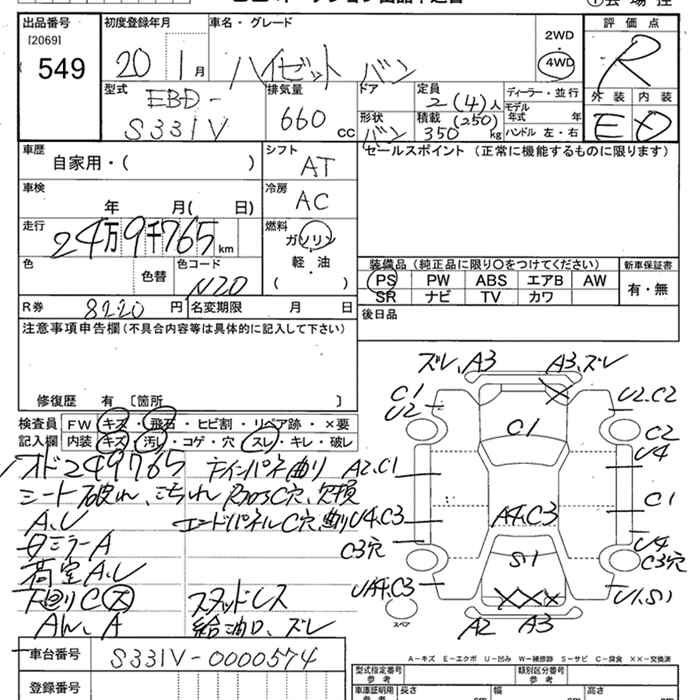 出品番号
[2069]
549
初度登録年月
20年 1月
車名・グレード
ハイゼット バン
2WD
4WD
評価点
R
型式
EBD-
S331V
排気量
660 cc
ドア
形状
バン
定員
2(4)人
積載 (250)
350 kg
ディーラー・並行
モデル
年式 年
ハンドル 左・右
外装 内装
E D
車歴
自家用・( )
シフト
AT
セールスポイント (正常に機能するものに限ります)
車検
年 月( 日)
冷房
AC
走行
24万9千765km
燃料
ガソリン
軽・油
( )
色
色替
色コード
N20
装備品 (純正品に限り○をつけてください)
新車保証書
PS PW ABS エアB AW
SR ナビ TV カワ
有・無
R券 8220 円
名変期限 月 日
後日品
注意事項申告欄 (不具合内容等は具体的に記入して下さい)
修復歴 有 〔箇所 〕
検査員
記入欄
FW キズ・飛石・ヒビ割・リペア跡・×要
内装 キズ・汚レ・コゲ・穴・スレ・キレ・破レ
オド249765
シート破れ、汚れ
A.U
ミラーA
荷室A.U
下廻りC
A
インパネ曲り
C穴、欠損
エンドパネルC穴、曲り
スタッドレス
給油口、ズレ
ズレ、A3
A3、ズレ
C1
U2
U2.C2
C2
U4
C1
A2.C1
C1
A4.C3
U4.C3
C3穴
U4
C3穴
S1
UA4.C3
U1.S1
スペア
A2
A3
車台番号
S331V-0000574
登録番号
A-キズ E-エクボ U-凹み W-補修跡 S-サビ C-腐食 ××-交換済
型式指定番号
参考
類別区分番号
参考
車庫証明用
参考
長さ
幅
高さ